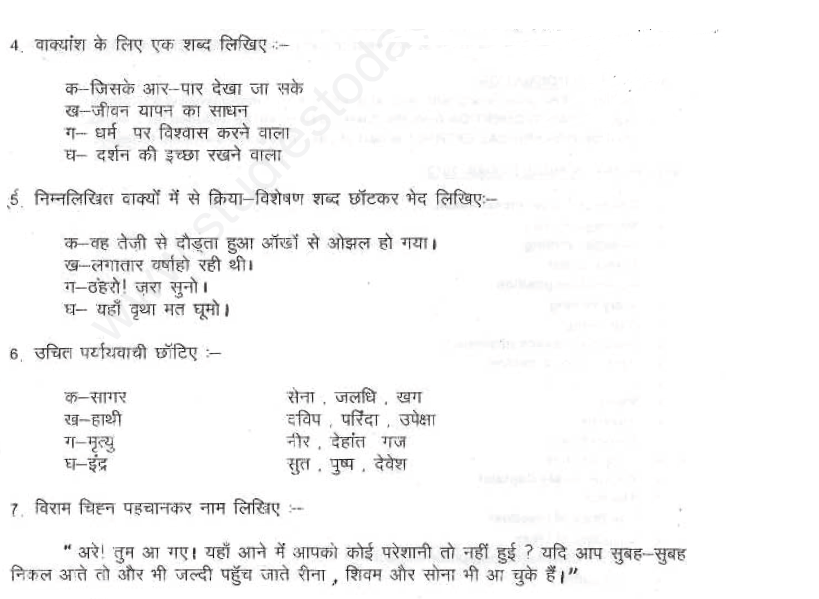 4. वाक्यांश के लिए एक शब्द लिखिए :–
क–जिसके आर–पार देखा जा सके
ख–जीवन यापन का साधन
ग– धर्म पर विश्वास करने वाला
घ– दर्शन की इच्छा रखने वाला
5. निम्नलिखित वाक्यों में से क्रिया–विशेषण शब्द छाँटकर भेद लिखिए:–
क–वह तेज़ी से दौड़ता हुआ आँखों से ओझल हो गया।
ख–लगातार वर्षाहो रही थी।
ग–ठहरो! ज़रा सुनो।
घ– यहाँ वृथा मत घूमो।
6. उचित पर्यायवाची छाँटिए :–
क–सागर सेना , जलधि , खग
ख–हाथी दविप , परिंदा , उपेक्षा
ग–मृत्यु नीर , देहांत गज
घ–इंद्र सुत , पुष्प , देवेश
7. विराम चिह्न पहचानकर नाम लिखिए :–
“ अरे! तुम आ गए। यहाँ आने में आपको कोई परेशानी तो नहीं हुई ? यदि आप सुबह–सुबह
निकल आते तो और भी जल्दी पहुँच जाते रीना , शिवम और सोना भी आ चुके हैं।”
www.studiestoda